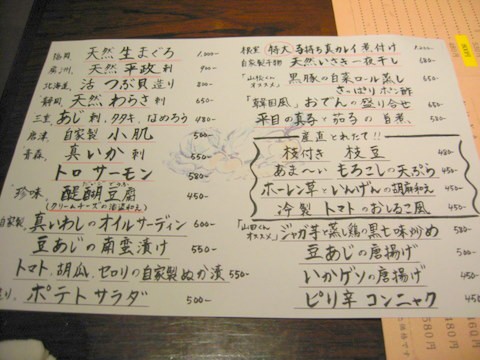 福岡 天然 生まぐろ 1,000-
天然 平政 刺 900-
北海道 活 つぶ貝 造り 800-
静岡 天然 わらさ 刺 650-
三重 あじ 刺、タタキ、なめろう 480-
唐津 自家製 小肌 500-
青森 真いか 刺 550-
トロ サーモン 580-
珍味 醍醐豆腐 450-
(クリームチーズの
自家製 真いわしのオイルサーディン 600-
豆あじの南蛮漬け 550-
トマト、胡瓜、セロリの自家製ぬか漬 550-
ポテトサラダ 500-
特大 子持ち真カレイ煮付け 1,000-
自家製干物 天然いさき一夜干し 680-
オススメ 黒豚の白菜ロール蒸し
さっぱりポン酢 680-
「韓国風」おでんの盛り合せ 650-
平目の真子と茄子の旨煮 500-
産直とれたて!!
枝付き 枝豆 480-
あま〜い もろこしの天ぷら 450-
ホーレン草といんげんの胡麻和え 400-
冷製 トマトのおしるこ風 400-
「山田くんオススメ」 ジャガ芋と蒸し鶏の黒七味炒め 580-
豆あじの唐揚げ 500-
いかゲソの唐揚げ 450-
ピリ辛 コンニャク 450-